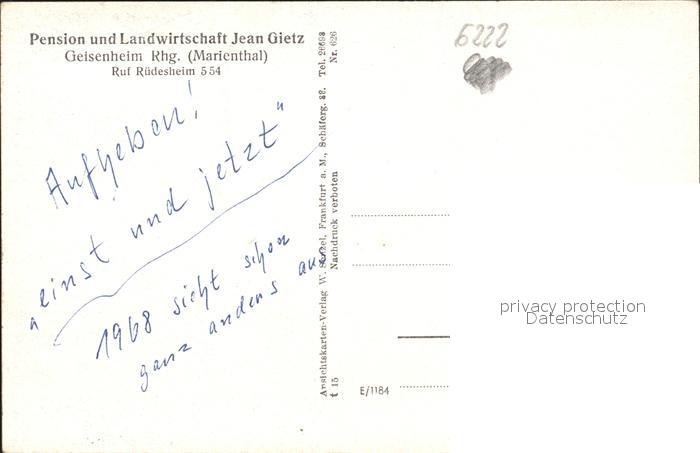 Pension und Landwirtschaft Jean Gietz
Geisenheim Rhg. (Marienthal)
Ruf Rüdesheim 554
Aufheben!
"einst und jetzt"
1968 sieht schon
ganz anders aus
Ansichtskarten-Verlag W. Frankfurt a. M., Schäferg. Tel.
Nachdruck verboten
Nr. 626
t 15
E/1184
6222
privacy protection
Datenschutz